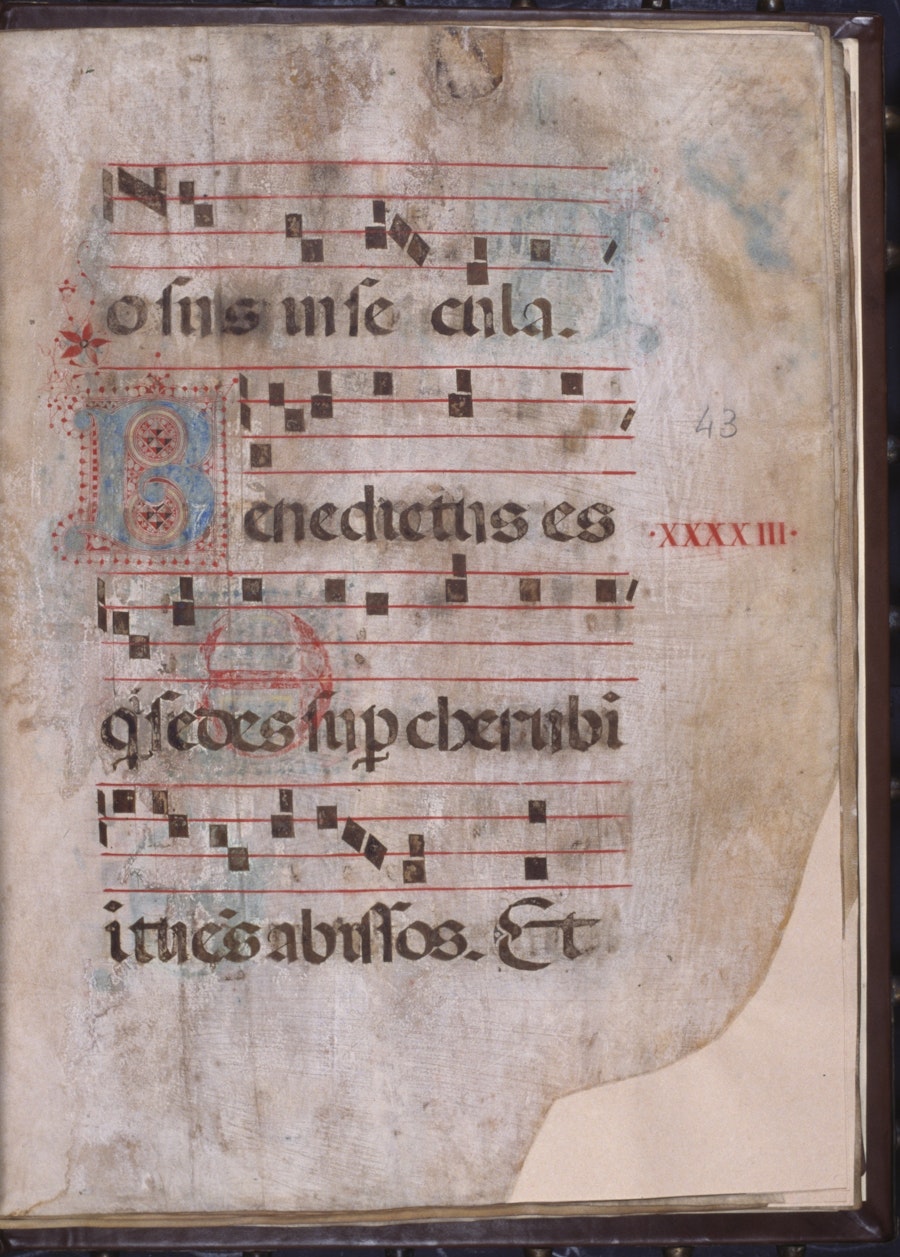 osus in se cula.
43
Benedictus es
·XXXXIII·
q sedes sup cherubi
ituēs abissos. Et